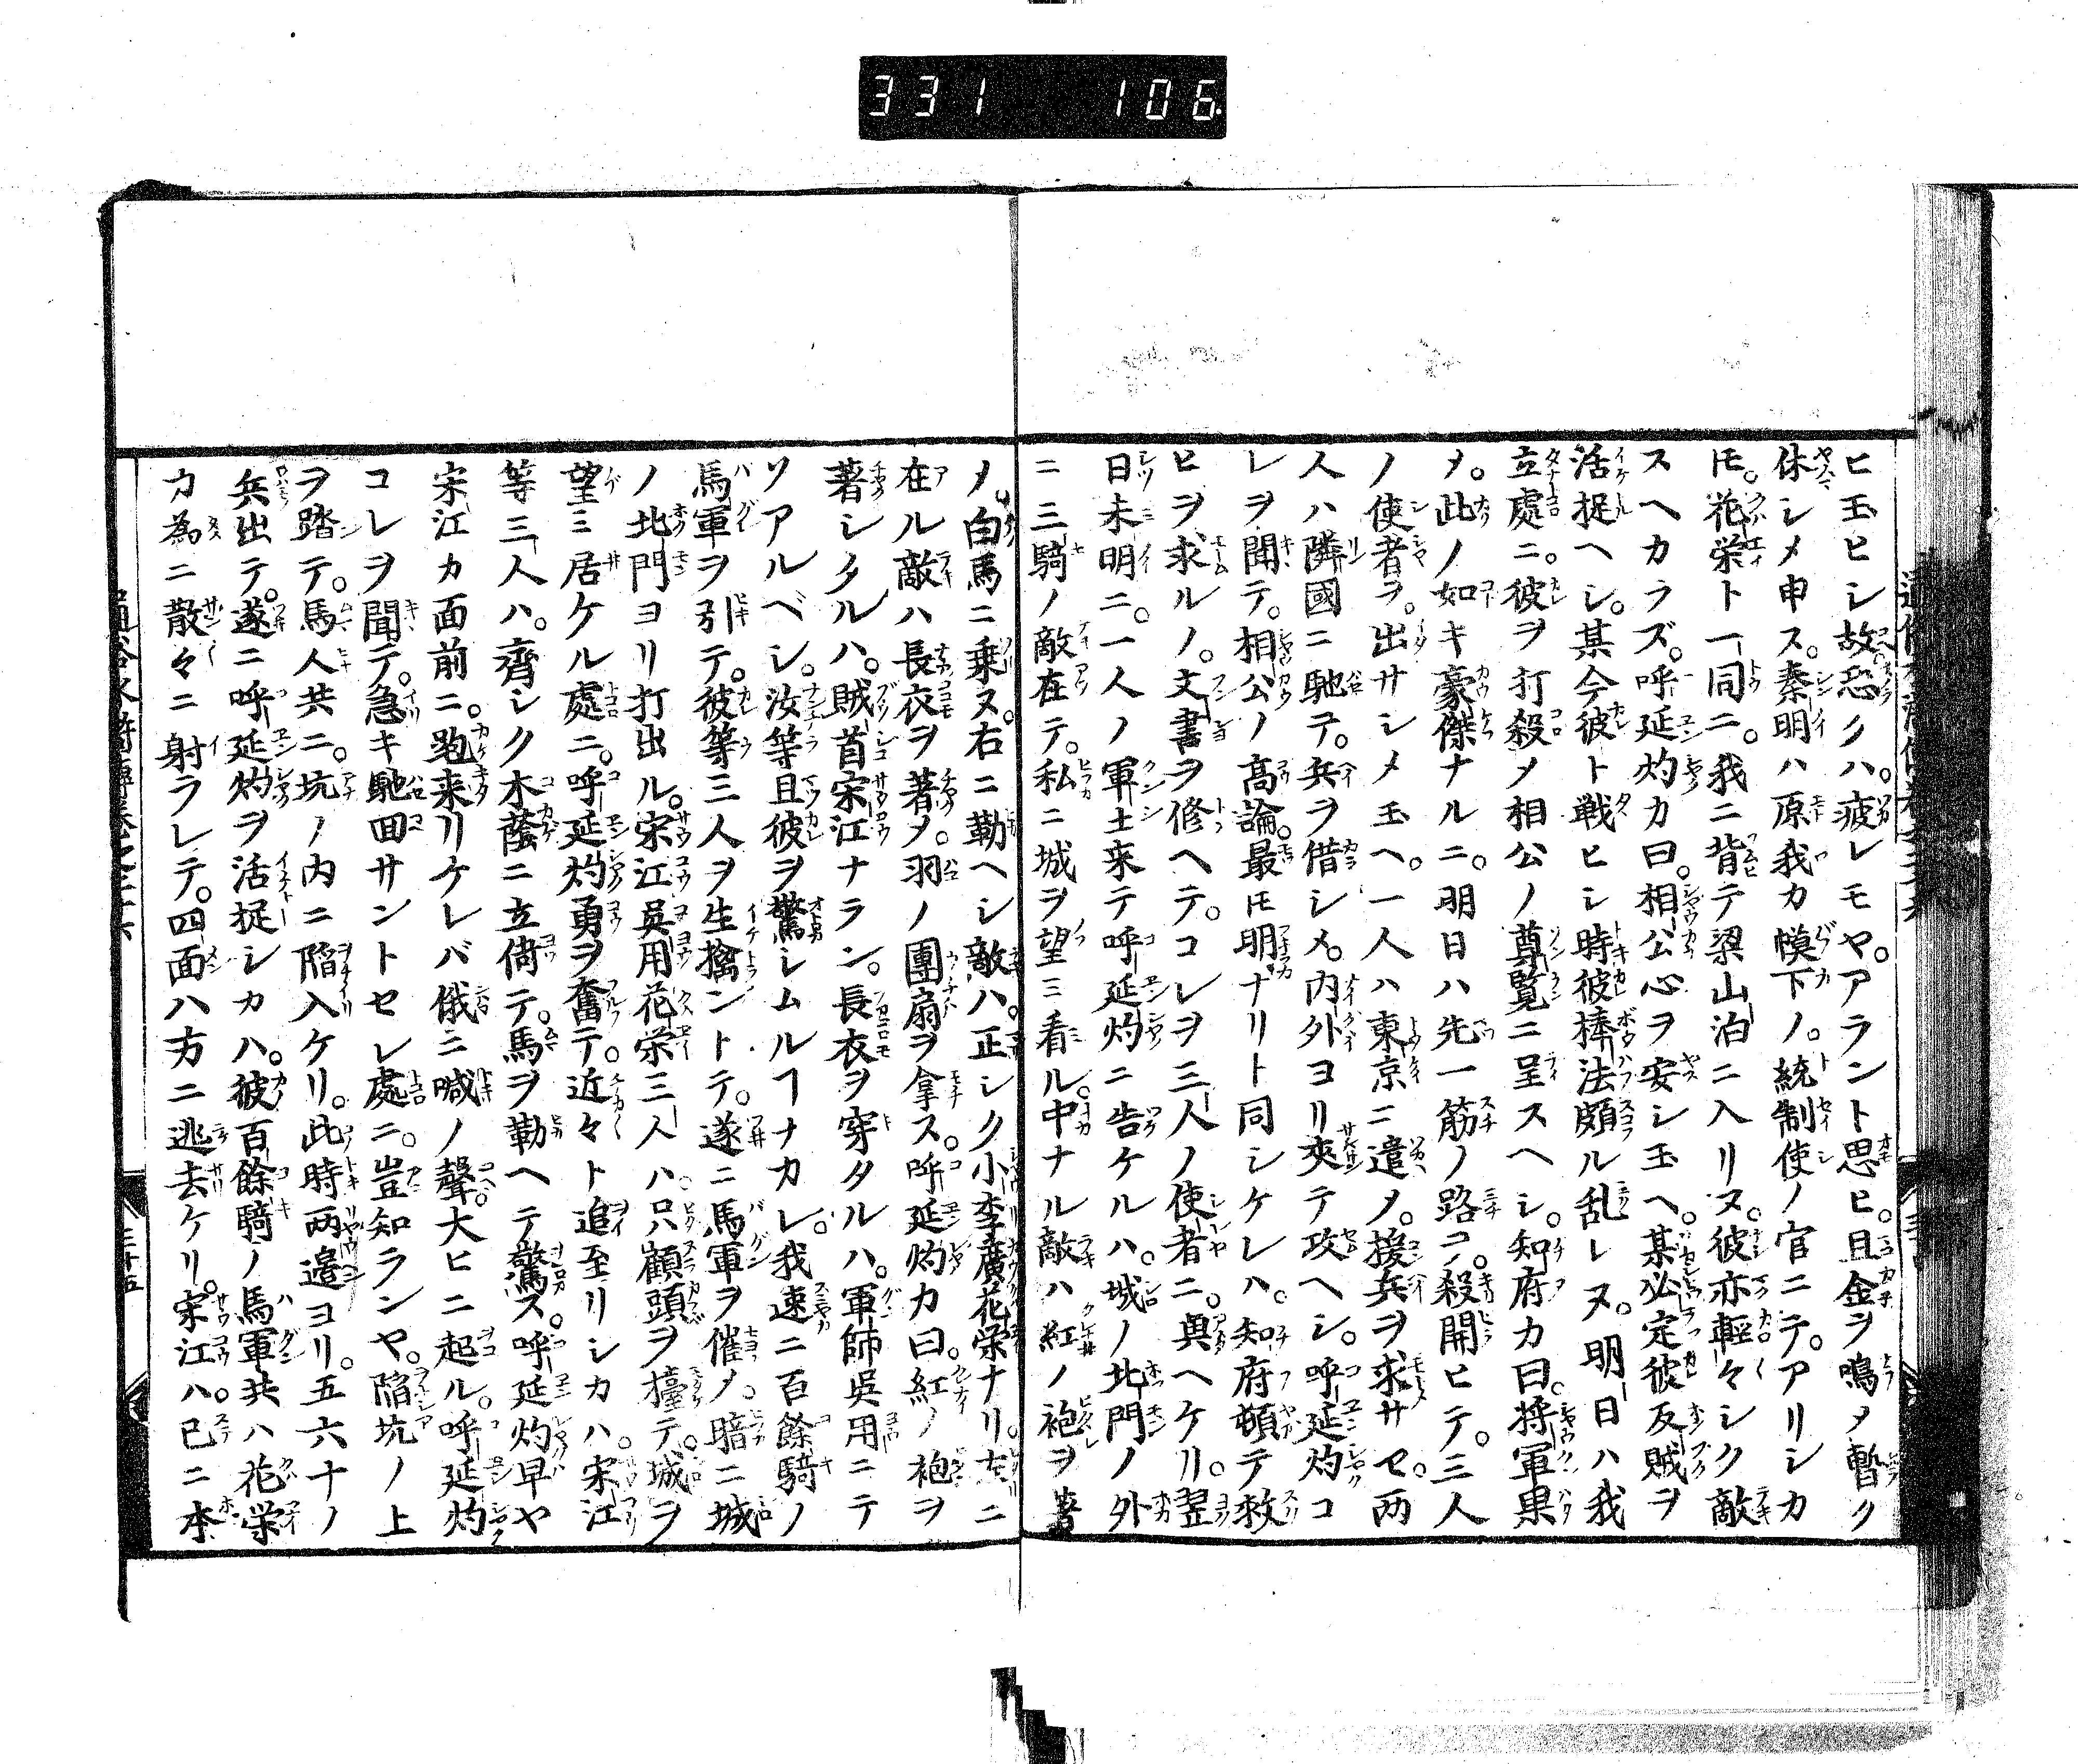 331 106
ヒ玉ヒシ故恐クハ。疲レモヤ。アラント思ヒ。且金ヲ鳴メ暫ク
休シメ申ス。秦明ハ原我カ幙下ノ。統制使ノ官ニテ。アリシカ
𪜈。花栄ト一同ニ。我ニ背テ梁山泊ニ入リヌ。彼亦輕々シク敵
スヘカラズ。呼延灼カ曰。相公心ヲ安シ玉ヘ。某必定彼反賊ヲ
活捉ヘシ。某今彼ト戦ヒシ時彼棒法頗ル乱レヌ。明日ハ我
立處ニ。彼ヲ打殺メ相公ノ尊覧ニ呈スヘシ。知府カ曰。將軍果
メ。此ノ如キ豪傑ナルニ。明日ハ先一筋ノ路ヲ。殺開ヒテ。三人
ノ使者ヲ。出サシメ玉ヘ。一人ハ東京ニ遣メ。援兵ヲ求サセ。两
人ハ隣國ニ馳テ。兵ヲ借シメ。内外ヨリ夾テ攻ヘシ。呼延灼コ
レヲ聞テ。相公ノ高論。最𪜈明ナリト同シケレハ。知府頓テ救
ヒヲ求ルノ。文書ヲ修ヘテ。コレヲ三人ノ使者ニ。與ヘケリ。翌
日未明ニ。一人ノ軍士来テ呼延灼ニ告ケルハ。城ノ北門ノ外
ニ三騎ノ敵在テ。私ニ城ヲ望ミ看ル。中ナル敵ハ紅ノ袍ヲ著
メ。白馬ニ乗ヌ。右ニ勒ヘシ敵ハ。正シク小李廣花栄ナリ。左ニ
在ル敵ハ長衣ヲ著メ。羽ノ團扇ヲ拿ス。呼延灼カ曰。紅ノ袍ヲ
著シタルハ。賊首宋江ナラン。長衣ヲ穿タルハ。軍師吳用ニテ
ソアルベシ。汝等且彼ヲ驚シムルヿナカレ。我速ニ百餘騎ノ
馬軍ヲ引テ。彼等三人ヲ生擒ントテ。遂ニ馬軍ヲ催メ。暗ニ城
ノ北門ヨリ打出ル。宋江吳用花栄三人ハ。只顧頭ヲ擡テ。城ヲ
望ミ居ケル處ニ。呼延灼勇ヲ奮テ。近々ト追至リシカハ。宋江
等三人ハ。齊シク木蔭ニ立倚テ。馬ヲ勒ヘテ驚ス。呼延灼早ヤ
宋江カ面前ニ。跑来リケレバ俄ニ喊ノ聲大ヒニ起ル。呼延灼
コレヲ聞テ。急キ馳回サントセレ處ニ。豈知ランヤ。陥坑ノ上
ヲ踏テ。馬人共ニ。坑ノ内ニ陥入ケリ。此時两邉ヨリ。五六十ノ
兵出テ。遂ニ呼延灼ヲ活捉シカハ。彼百餘騎ノ馬軍共ハ花栄
カ為ニ散々ニ射ラレテ。四面ハ方ニ逃去ケリ。宋江ハ。已ニ本
三十五